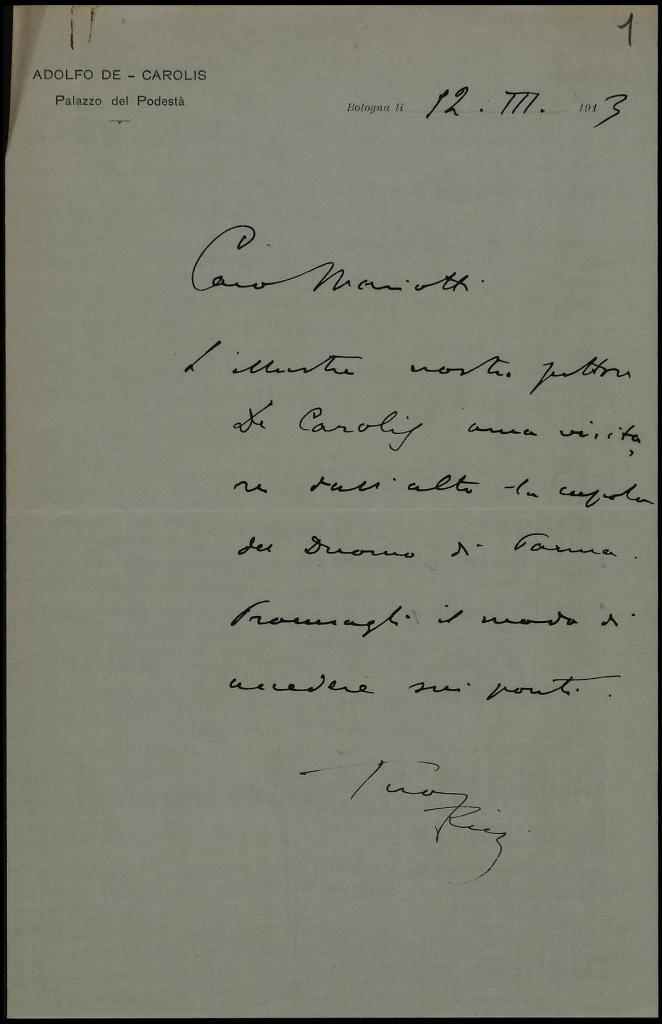 1
ADOLFO DE - CAROLIS
Palazzo del Podestà
Bologna li 12. III. 1913
Caro Mariotti
L'illustre nostro pittore
De Carolis ama visita,
re dall'alto la cupola
del Duomo di Parma.
Procuragli il modo di
accedere sui ponti.
Tuo
Ricci